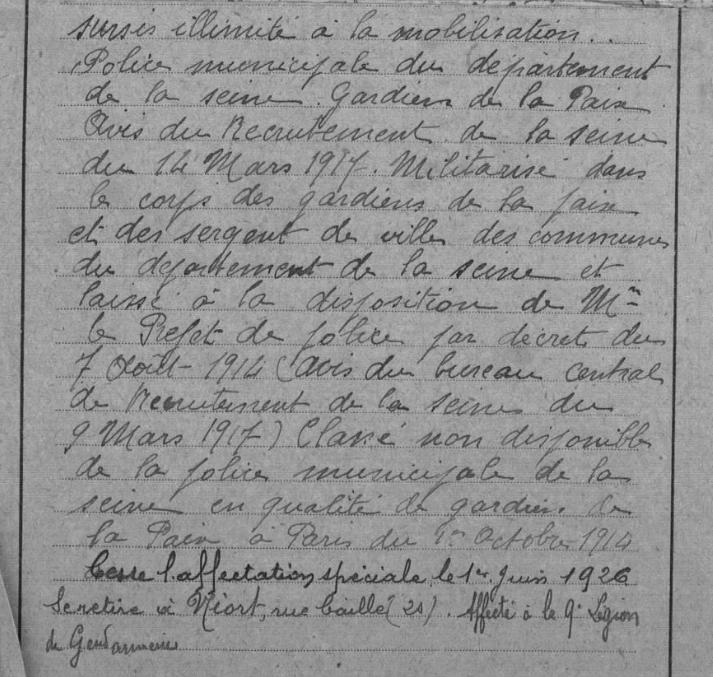 sursis illimité à la mobilisation.
Police municipale du département
de la seine. Gardien de la Paix
Avis du Recrutement de la seine
du 14 Mars 1917. Militarisé dans
le corps des gardiens de la paix
et des sergent de ville des communes
du département de la seine et
laissé à la disposition de Mr
le Préfet de police par décret du
7 Août 1914 (avis du bureau central
de Recrutement de la seine du
9 Mars 1917) Classé non disponible
de la police municipale de la
seine en qualité de gardien de
la Paix à Paris du 1er Octobre 1914
Cesse l'affectation spéciale le 1er Juin 1926
Se retire à Niort, rue (21). Affecté à la 9e Légion
de Gendarmerie